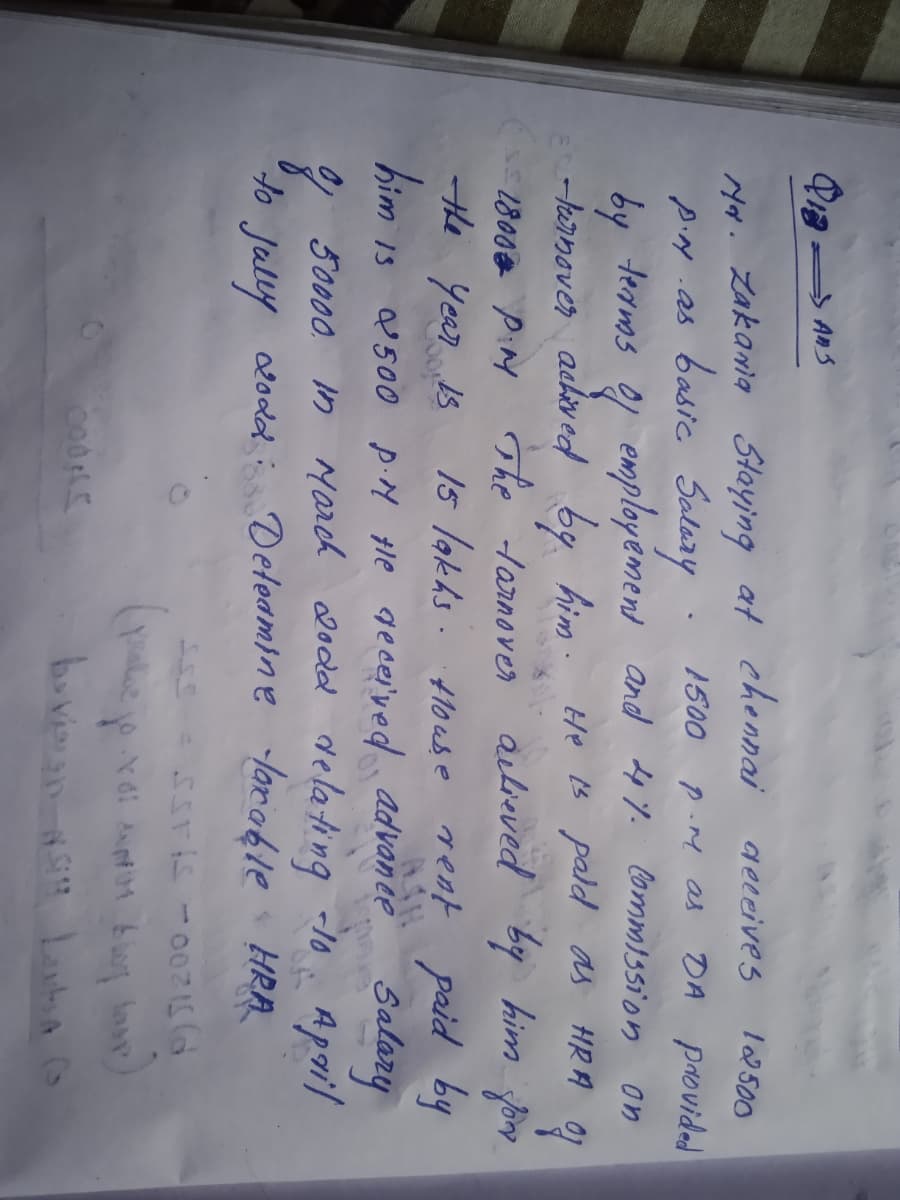 Q18 ⟹ Ans
Mr. Zakaria Staying at chennai receives 12500
P.M. as basic Salary. 1500 P.M as DA provided
by terms of employement and 4% Commission on
turnover achived by him. He is paid as HRA of
1800 P.M The turnover achieved by him for
the year is 15 lakhs. House rent paid by
him is 2500 P.M He received advance Salary
of 50000 in March 2022 relating to April
to Jully 2022. Detedmine taxable HRA